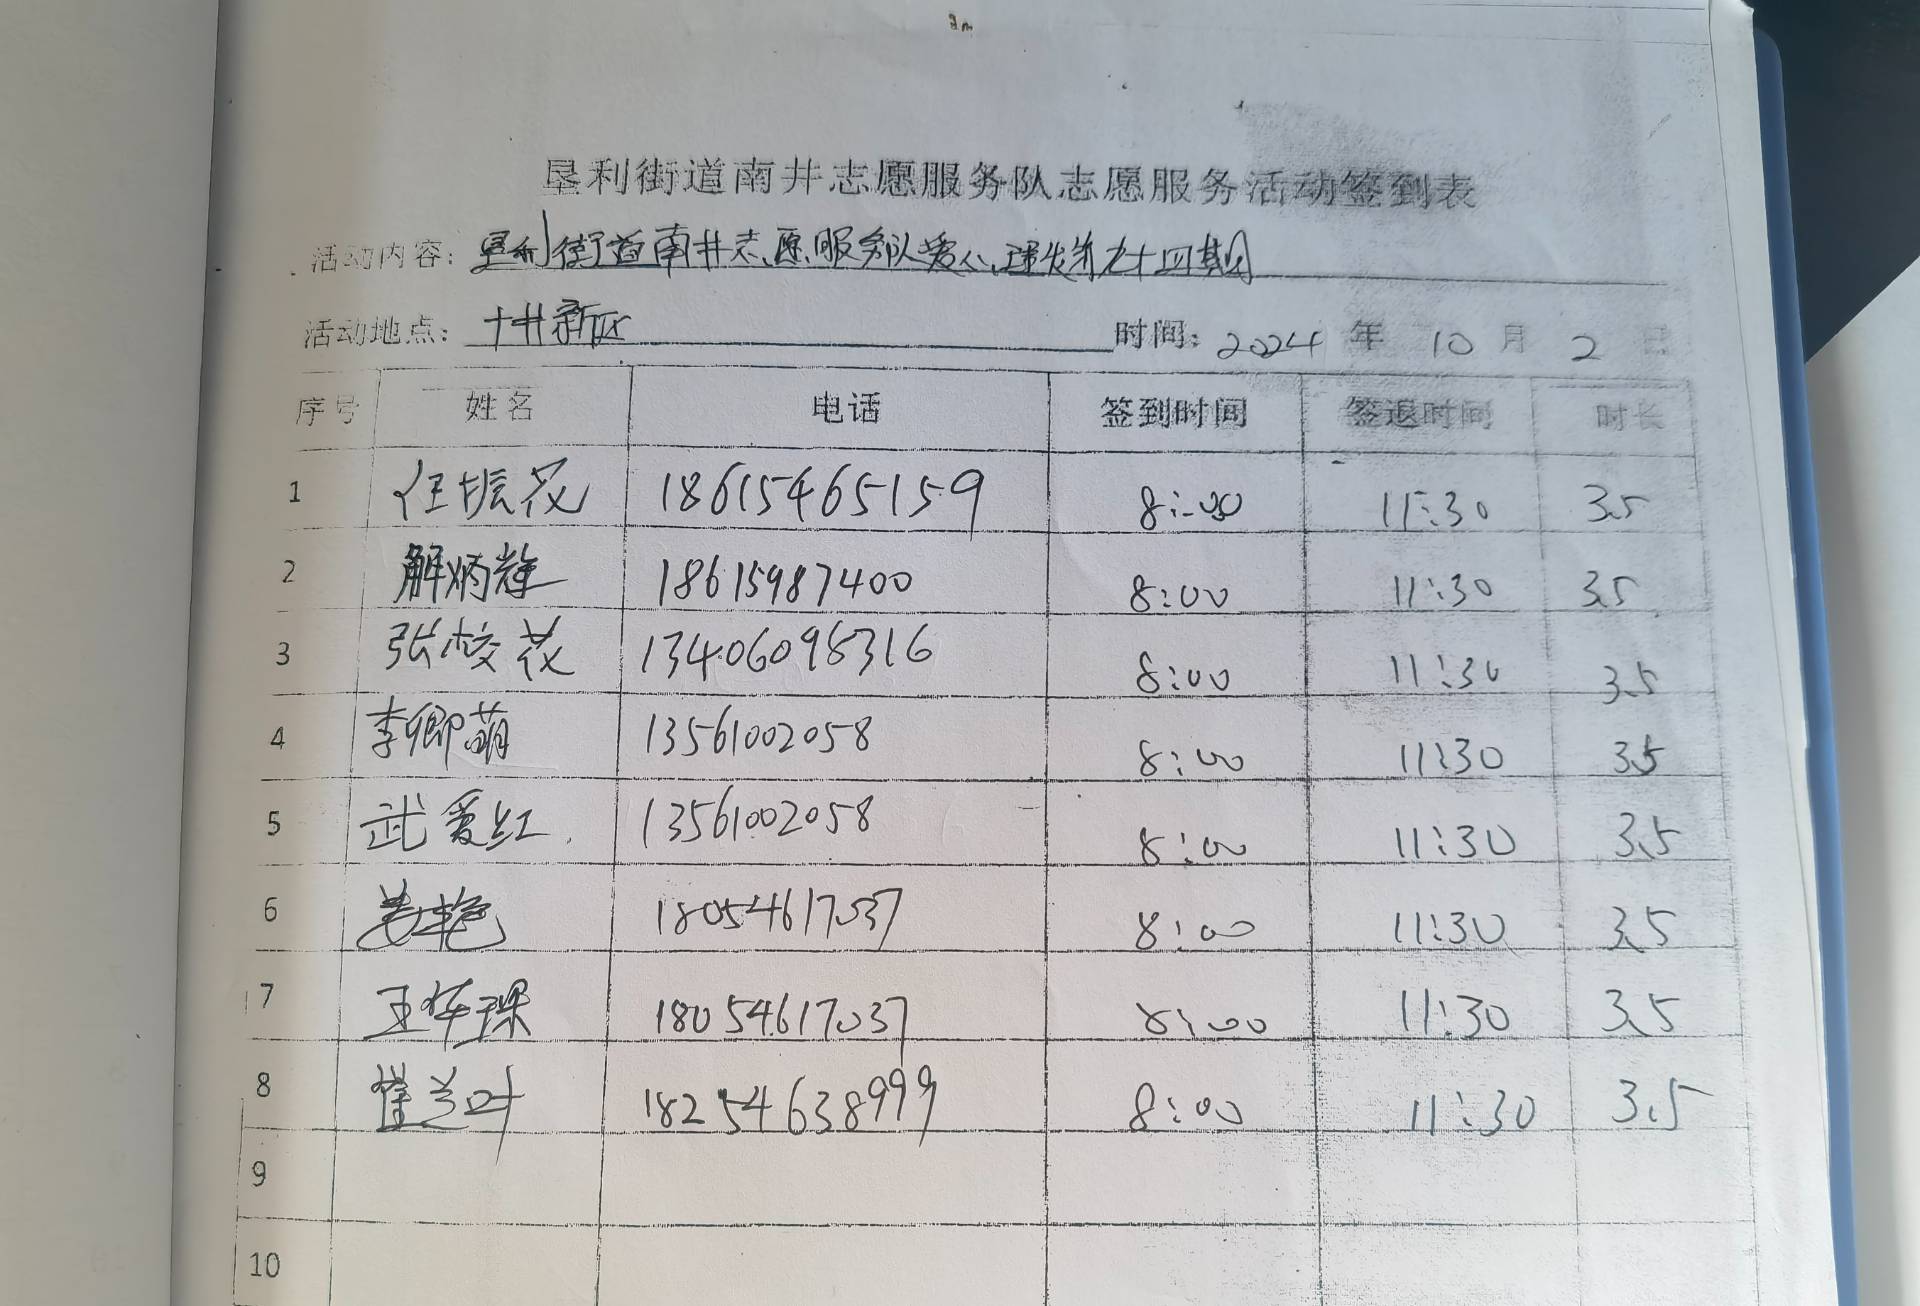 垦利街道南井志愿服务队志愿服务活动签到表
活动内容：垦利街道南井志愿服务队爱心理发第九十四期
活动地点：十井新区 时间：2024 年 10 月 2 日
序号 姓名 电话 签到时间 签退时间 时长
1 任振花 18615465159 8:00 11:30 3.5
2 解炳辉 18615987400 8:00 11:30 3.5
3 张校花 13406098316 8:00 11:30 3.5
4 李卿萌 13561002058 8:00 11:30 3.5
5 武爱红 13561002058 8:00 11:30 3.5
6 姜艳 18054617037 8:00 11:30 3.5
7 王华琛 18054617037 8:00 11:30 3.5
8 崔兰叶 18254638999 8:00 11:30 3.5
9
10